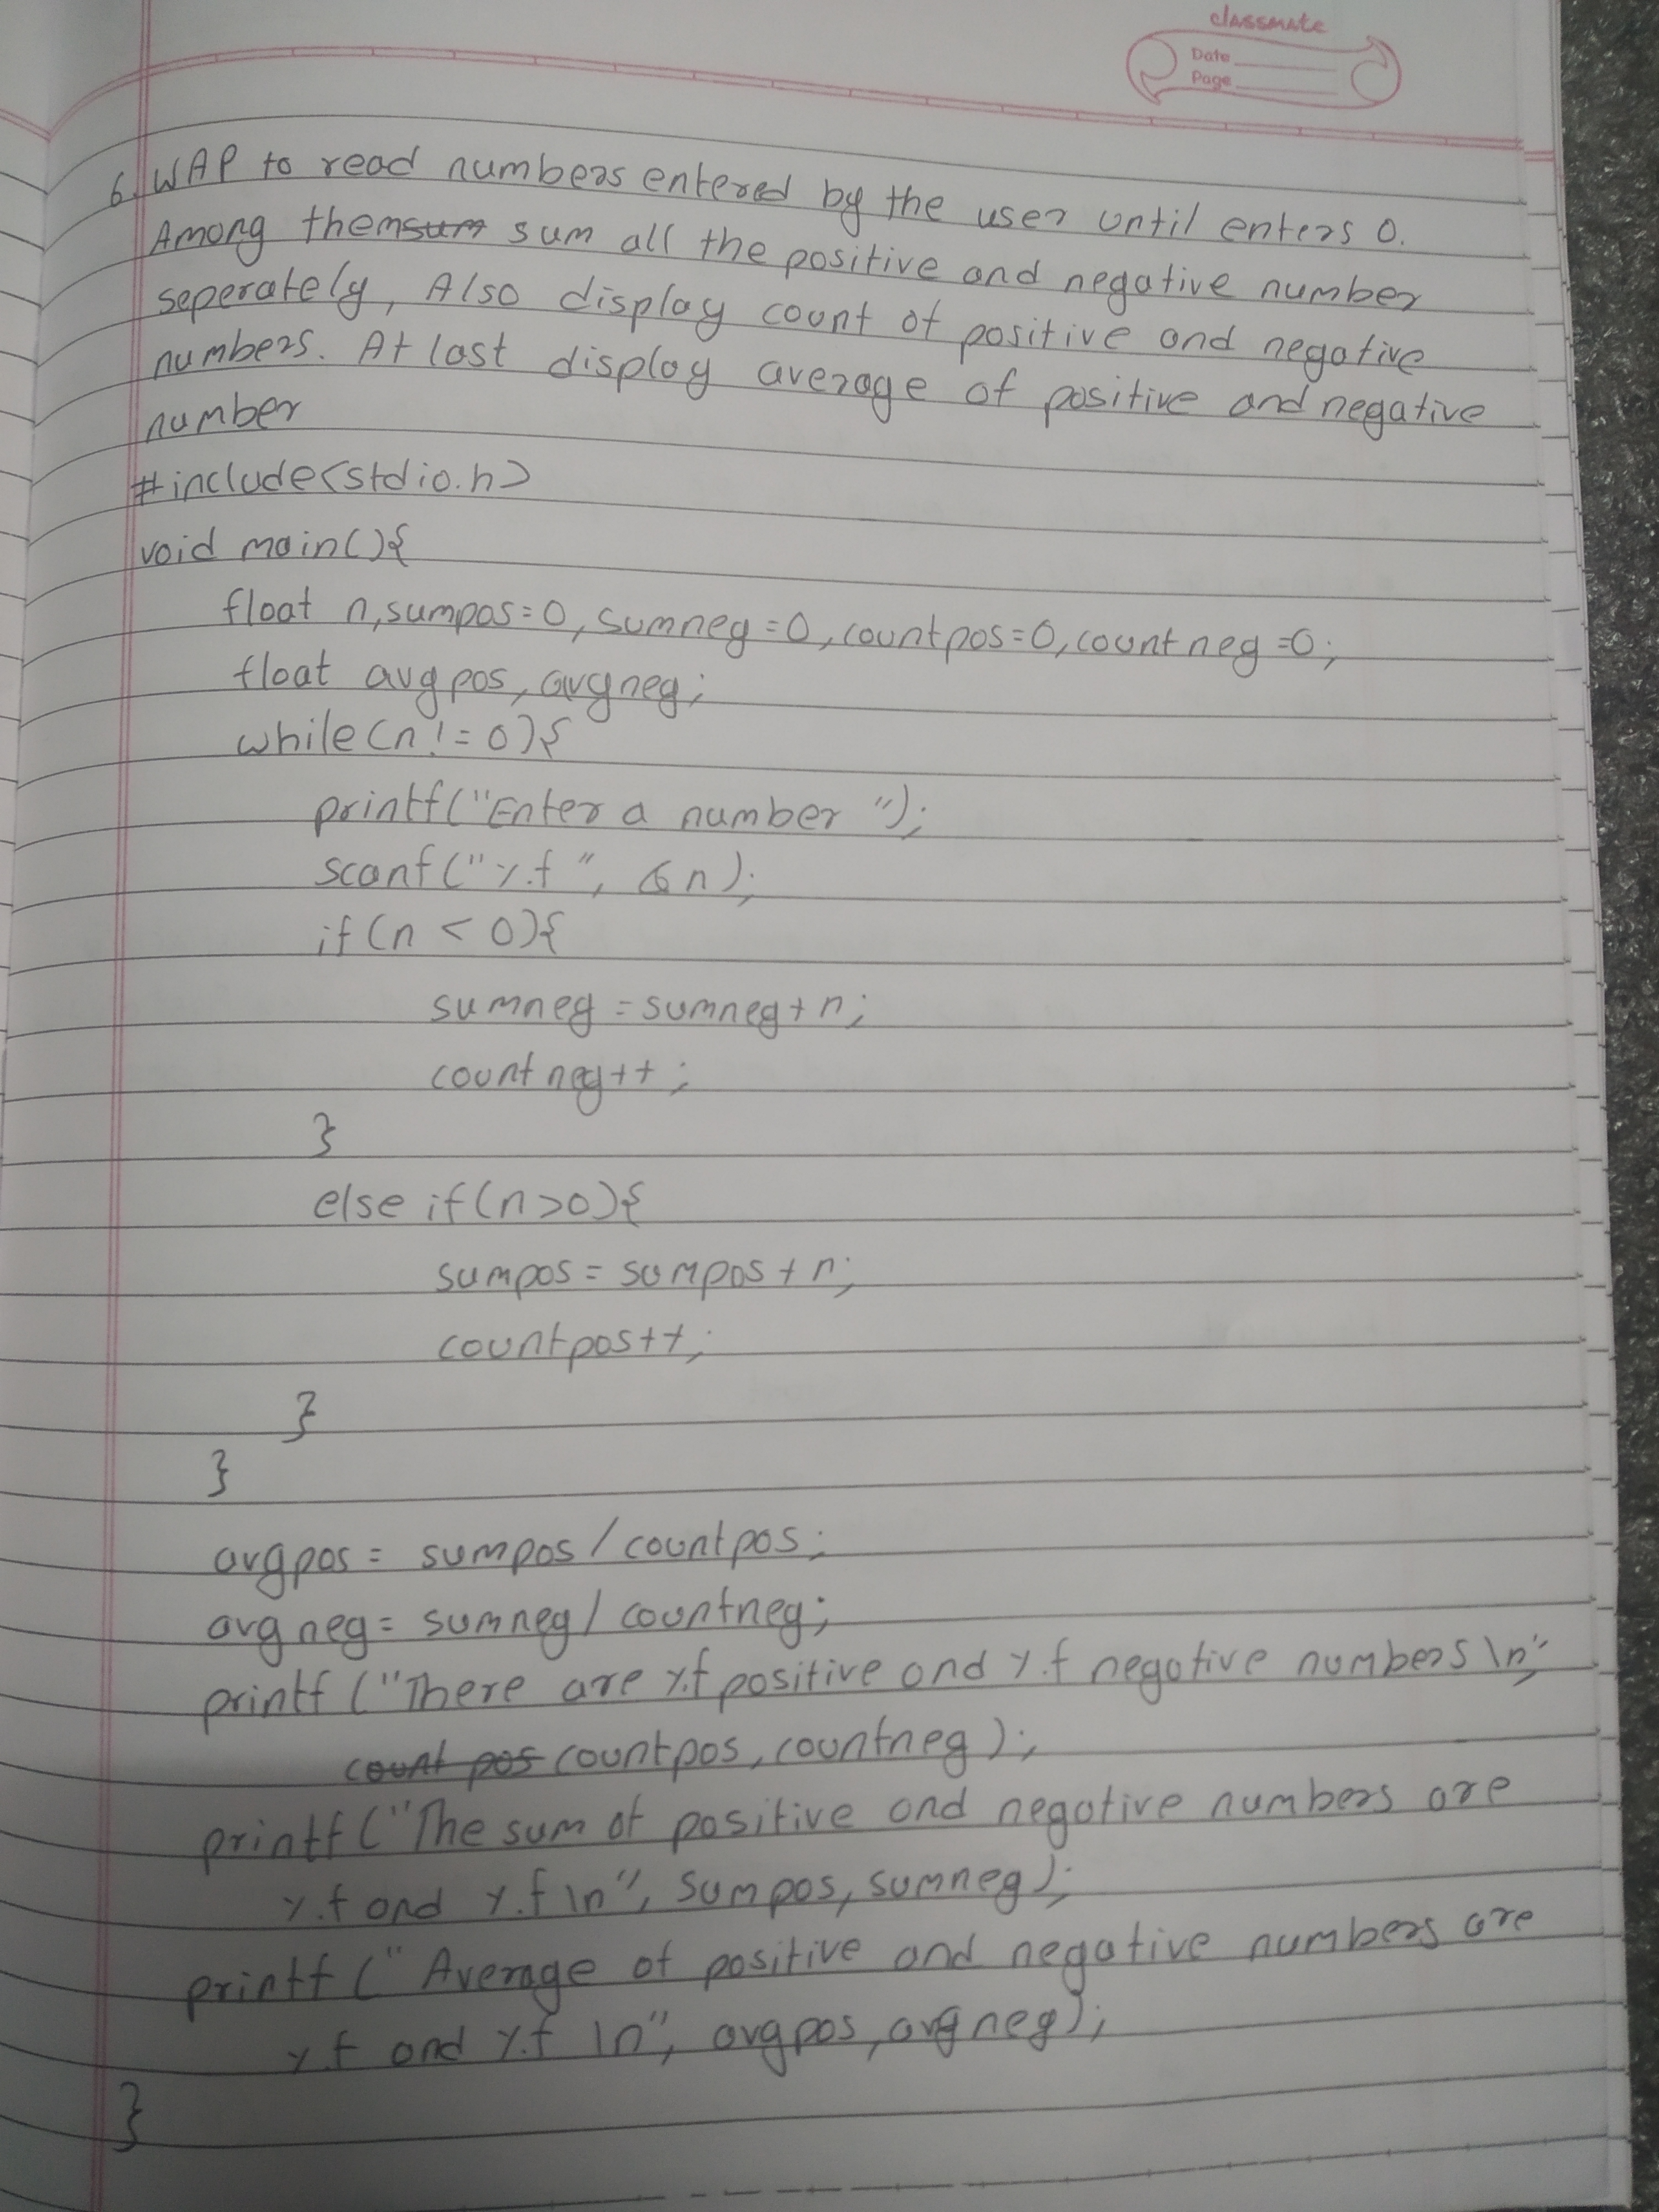 classmate
Date
Page
6. WAP to read numbers entered by the user until enters 0.
Among themsum sum all the positive and negative number
seperately, Also display count of positive and negative
numbers. At last display average of positive and negative
number
#include<stdio.h>
void main(){
float n,sumpos=0, sumneg=0, countpos=0, countneg=0;
float avgpos, avgneg;
while(n!=0){
printf("Enter a number ");
scanf("%f ", &n);
if(n < 0){
sumneg = sumneg+n;
countneg++;
}
else if(n>0){
sumpos = sumpos+n;
countpos++;
}
}
avgpos = sumpos / countpos;
avgneg = sumneg / countneg;
printf ("There are %f positive and %f negative numbers \n",
count pos countpos, countneg);
printf ("The sum of positive and negative numbers are
%f and %f \n", sumpos, sumneg);
printf (" Average of positive and negative numbers are
%f and %f \n", avgpos, avgneg);
}